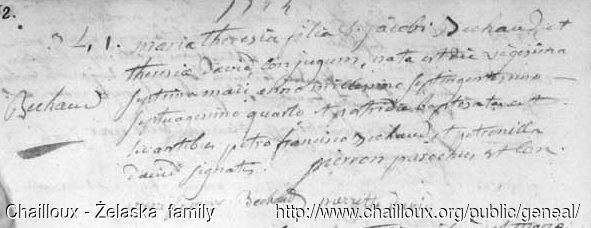 2.
1774
maria theresia filia jacobi Bechaud et
theresiæ david conjugum, nata est die vigesima
septima maii anno millesimo septingentesimo
Bechaud
septuagesimo quarto et postridie baptisata est
levantibus petro francisco Bechaud, et petronilla
david signatis. pierron parochus
Bechaud
Chailloux - Żelaska family http://www.chailloux.org/public/geneal/